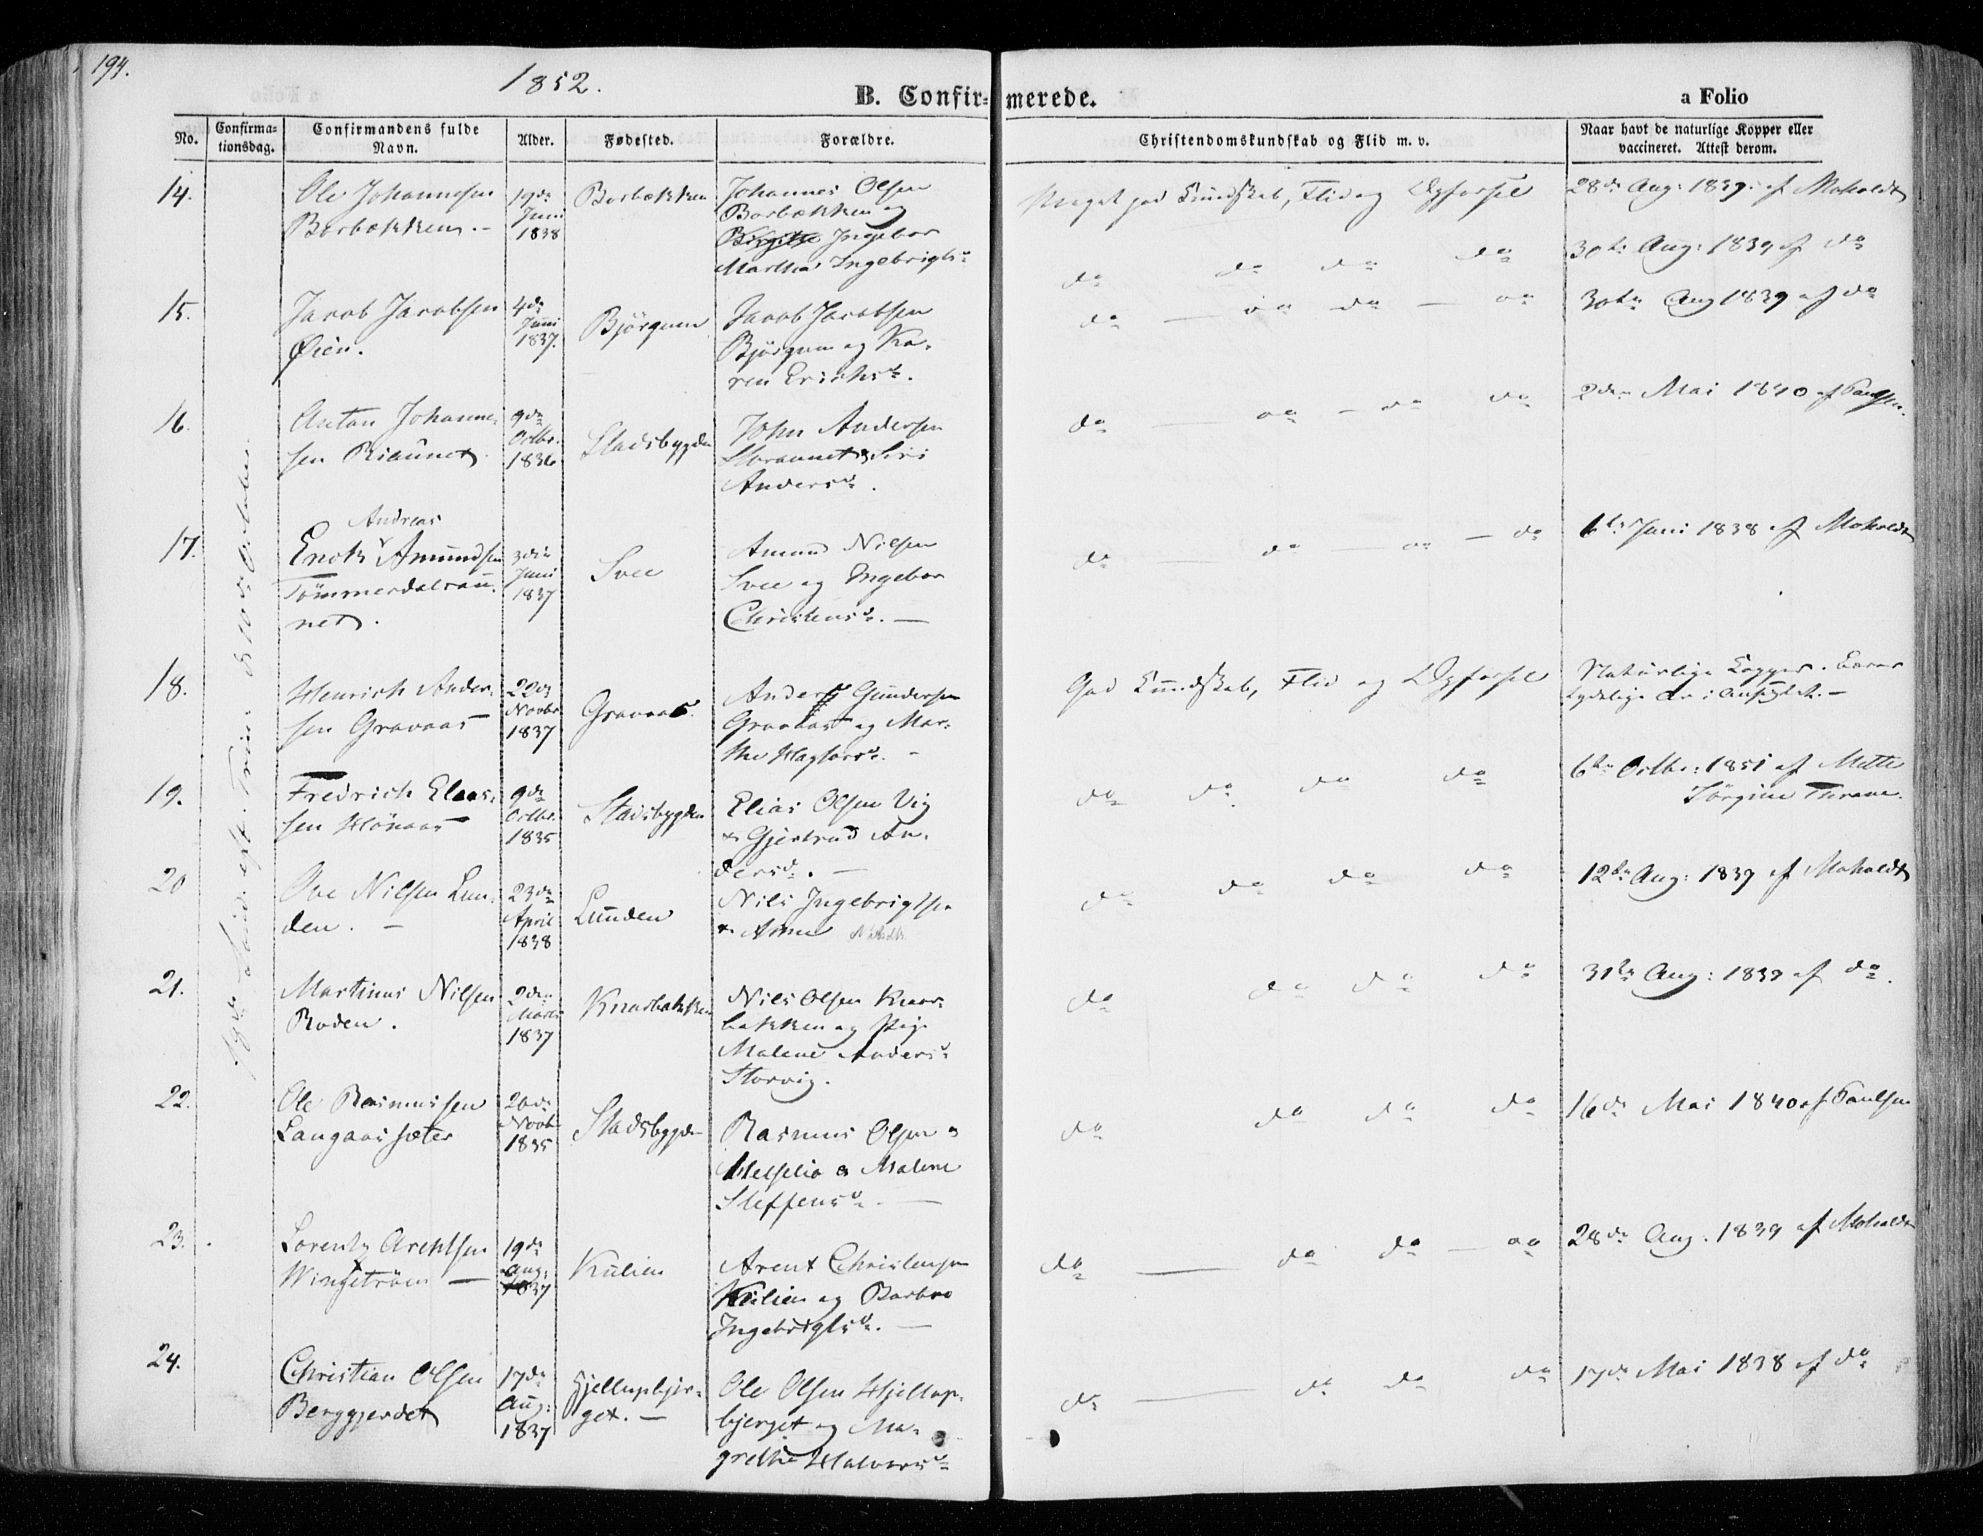 194.
1852.
B. Confirmerede.
a Folio
No.
Confirmationsdag.
Confirmandens fulde Navn.
Alder.
Fødested.
Forældre.
Christendomskundskab og Flid m. v.
Naar havt de naturlige Kopper eller vaccineret. Attest derom.
14.
Ole Johannesen
Borbækken. -
19de
Juni
1838
Borbækken
Johannes Olsen
Borbækken og
Ingebor
Martha Ingebrigtsd.
Meget god Kundskab, Flid og Opførsel
28de Aug: 1839. af Moholdt
do do do do
30te Aug: 1839 af do
15.
Jacob Jacobsen
Øien.
4de
Juni
1837.
Björgum
Jacob Jacobsen
Björgum og Ka-
ren Erichsd.
do — do do — do
30te Aug 1839 af do
16.
Anton Johanne-
sen Riaunet
9de
Octbr.
1836
Stadsbygden
John Andersen
Andersd.
do — do — do do
2den Mai 1840 af Paulsen.
17.
Andreas
Enok Amundsen
Tömmerdalraun-
net.
3die
Juni
1837
Svee
Amund Nilsen
Svee og Ingebor
Christensd. —
do — do — do — do
6te Juni 1838 af Moholdt
18.
Henrich Ander-
sen Gravaas
22de
Novbr
1837
Gravaas.
Anders Gundersen
Gravaas og Mar-
the -
God Kundskab, Flid og Opførsel
Naturlige Kopper. Bærer
tydelige Ar i Ansigtet. —
19.
Fredrich Elias-
sen Hönaas
9de
Octbr.
1835
Stadsbygden
Elias Olsen Vig
& Gjertrud An-
dersd. —
do do do do
6te Octbr: 1851 af Mette
Sörgine Thrane.
20
Ove Nilsen Lun-
den. -
23de
April
1838
Lunden
Nils Ingebrigtsen
& Anne
do do do do
12te Aug: 1839 af Moholdt
21.
Martinus Nilsen
Roden.
2den
Marts
1837
Knarbakken
Nils Olsen Knar-
bakken og Pige
Malene Andersd.
Storvig.
do do do do
31te Aug: 1839 af do.
22.
Ole Rasmussen
Langaassæter
20de
Novbr
1835
Stadsbygden
Rasmus Olsen
& Malene
Steffensd. —
do do do do
16de Mai 1840 af Paulsen
23.
Lorentz Arentsen
Wingström —
19de
Aug:
1837
Kulien
Arent Christensen
Kulien og Barbro
Ingebrigtsd. —
do — do do — do
28de Aug. 1839 af Moholdt
24.
Christian Olsen
Berggjerdet
17de
Aug:
1837
Hjellupbjer-
get. —
Ole Olsen Hjellup-
bjerget og Ma-
grethe Halvorsd.
do — do do do
17de Mai 1838 af do